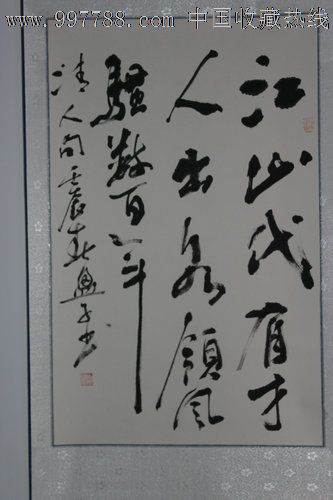 www.997788.com 中国收藏热线
江山代有才
人出各領风
騷数百年
清人句壬辰春子书